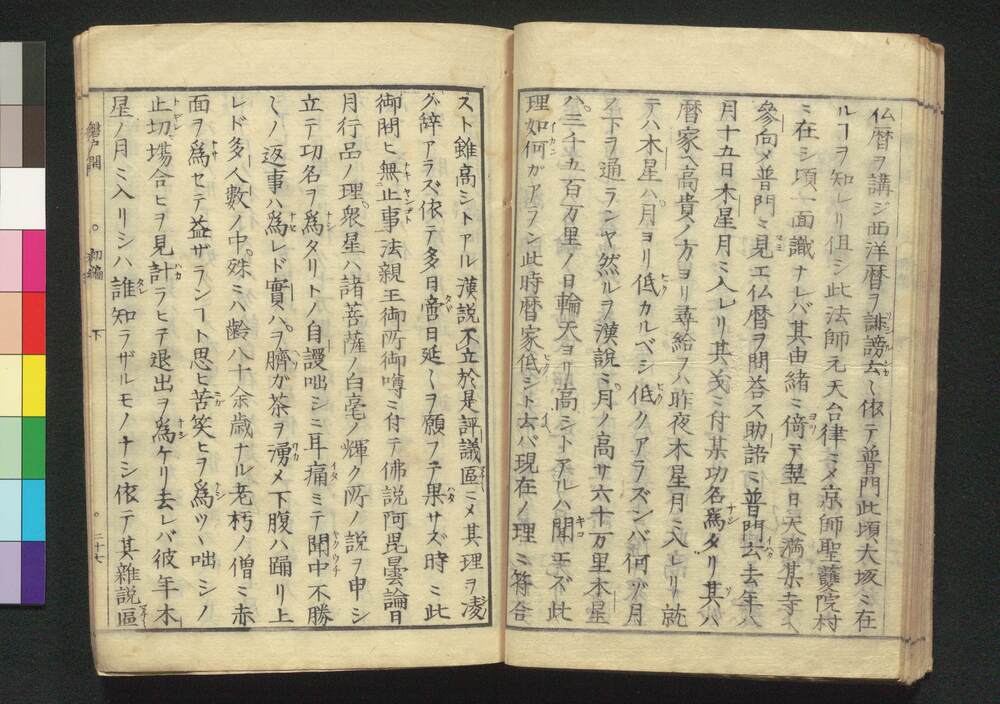 仏暦ヲ講ジ西洋暦ヲ誹謗去〱依テ普門此頃大坂ミ在
ルヿヲ知レリ但シ此法師元天台律ミメ京師聖護院村
ミ在シ頃一面識ナレバ其由緒ミ倚テ翌日天満某寺ヘ
參向メ普門ミ見エ仏暦ヲ問答ス助語ミ普門去去年八
月十五日木星月ミ入レリ其㐧ミ付某功名為タリ其ハ
暦家ヘ高貴ノ方ヨリ尋給フハ昨夜木星月ミ入レリ就
テハ木星ハ月ヨリ低カルベシ低クアラズンバ何ヅ月
ノ下ヲ通ランヤ然ルヲ漢説ミ月ノ高サ六十万里木星
ハ三千五百万里ノ日輪天ヨリ高ミトアルハ聞エズ此
理如何ガアラン此時暦家低シト去バ現在ノ理ミ符合
スト雖高シトアル漢説不立於是評議區ミメ其理ヲ凌
グ辞アラズ依テ多日啻日延〱ヲ願フテ果サズ時ミ此
御問ヒ無止事法親王御所御噂ミ付テ佛説阿毘曇論日
月行品ノ理衆星ハ諸菩薩ノ白毫ノ輝ク所ノ説ヲ申シ
立テ功名ヲ為タリトノ自謾咄シミ耳痛ミテ聞中不勝
〱ノ返事ハ為レド實ハヲ臍ガ茶ヲ湧メ下腹ハ踊リ上
レド多人數ノ中殊ミハ齢八十余歳ナル老朽ノ僧ミ赤
面ヲ為セテ益ザランヿト思ヒ苦笑ヒヲ為ツヽ咄シノ
止切塲合ヒヲ見計ラヒテ退出ヲ為ケリ去レバ彼年木
星ノ月ミ入リシハ誰知ラザルモノナシ依テ其雑説區
初編
下
二十七